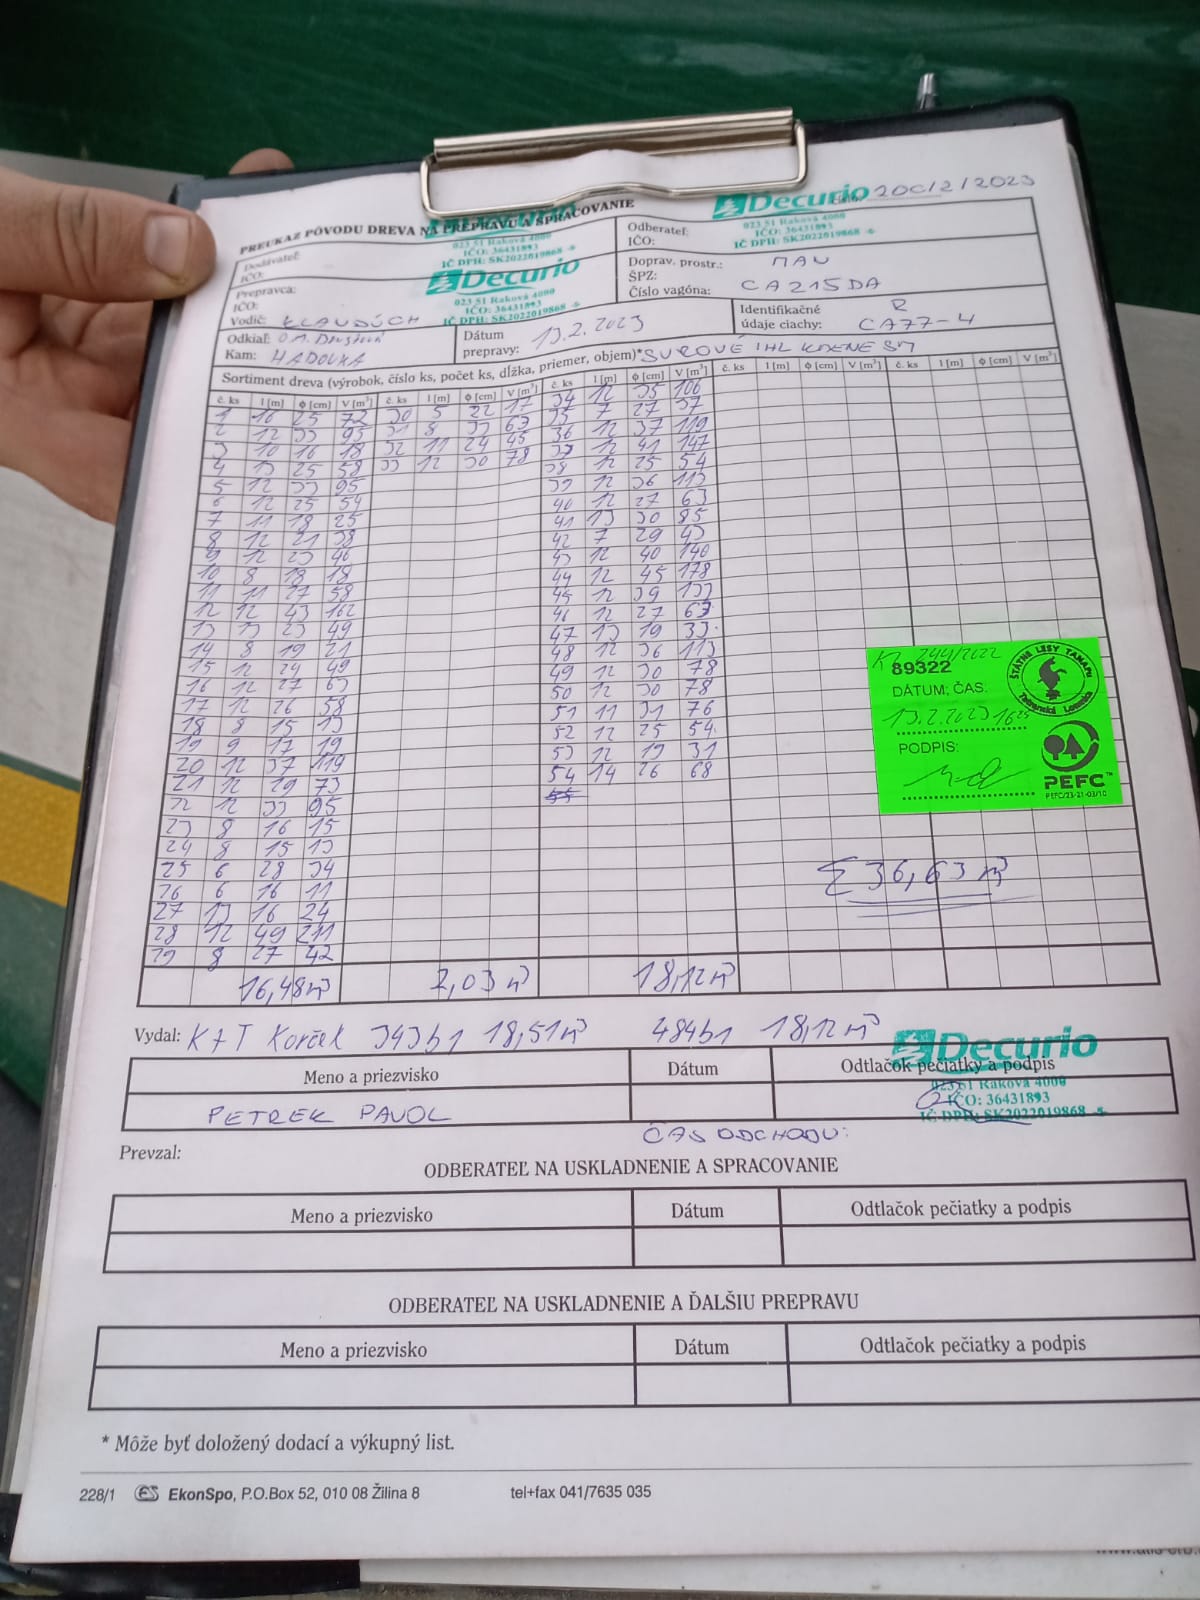 Decurio 200/2/2023
PREUKAZ PÔVODU DREVA NA PREPRAVU A SPRACOVANIE
023 51 Raková 4000
IČO: 36431893
IČ DPH: SK2022019868
Dodávateľ:
IČO:
Odberateľ:
IČO:
023 51 Raková 4000
IČO: 36431893
IČ DPH: SK2022019868
Decurio
023 51 Raková 4000
IČO: 36431893
IČ DPH: SK2022019868
Prepravca:
IČO:
Vodič: KLAUDÚCH
Doprav. prostr.: MAN
ŠPZ:
Číslo vagóna: CA215DA
Odkiaľ:
Kam: HADOVKA
Dátum
prepravy: 13.2.2023
Identifikačné R
údaje ciachy: CA77-4
Sortiment dreva (výrobok, číslo ks, počet ks, dĺžka, priemer, objem)* SUROVÉ IHL KMENE SM
č. ks l [m] ϕ [cm] V [m³] č. ks l [m] ϕ [cm] V [m³] č. ks l [m] ϕ [cm] V [m³] č. ks l [m] ϕ [cm] V [m³] č. ks l [m] ϕ [cm] V [m³]
1 16 25 72 30 5 22 17 34 12 35 106
2 12 33 95 31 8 33 63 35 7 27 37
3 10 16 18 32 11 24 45 36 12 37 119
4 13 25 58 33 12 30 78 37 12 41 147
5 12 33 95 38 12 25 54
6 12 25 54 39 12 36 113
7 11 18 25 40 12 27 63
8 12 21 38 41 13 30 85
9 12 23 46 42 7 29 43
10 8 18 18 43 12 40 140
11 11 27 58 44 12 45 178
12 12 43 162 45 12 39 133
13 13 23 49 46 12 27 63
14 8 19 21 47 13 19 33
15 12 24 49 48 12 36 113
16 12 27 63 49 12 30 78
17 12 26 58 50 12 30 78
18 8 15 13 51 11 31 76
19 9 17 19 52 12 25 54
20 12 37 119 53 12 19 31
21 12 29 73 54 14 26 68
22 12 33 95 55
23 8 16 15
24 8 15 13
25 6 28 34
26 6 16 11
27 13 16 24
28 12 49 211
29 8 27 42
16,48 m³ 2,03 m³ 18,12 m³
KT 244/2022
89322
DÁTUM; ČAS:
13.2.2023 16
PODPIS:
ŠTÁTNE LESY TANAPu
Tatranská Lomnica
PEFC™
PEFC/23-21-03/10
Σ 36,63 m³
Vydal: K+T Korček 343b1 18,51 m³ 484b1 18,12 m³
Decurio
Meno a priezvisko Dátum Odtlačok pečiatky a podpis
023 51 Raková 4000
IČO: 36431893
IČ DPH: SK2022019868
PETREK PAVOL
ČAS ODCHODU:
Prevzal:
ODBERATEĽ NA USKLADNENIE A SPRACOVANIE
Meno a priezvisko Dátum Odtlačok pečiatky a podpis
ODBERATEĽ NA USKLADNENIE A ĎALŠIU PREPRAVU
Meno a priezvisko Dátum Odtlačok pečiatky a podpis
* Môže byť doložený dodací a výkupný list.
228/1 ES EkonSpo, P.O.Box 52, 010 08 Žilina 8 tel+fax 041/7635 035